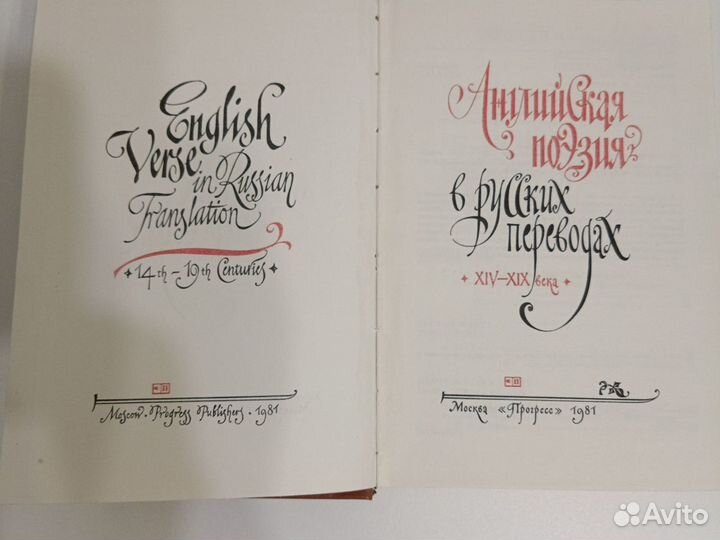 English
Verse
in Russian
Translation
14th–19th Centuries
Moscow · Progress Publishers · 1981
Английская
поэзия
в русских
переводах
XIV–XIX века
Москва «Прогресс» 1981
Avito